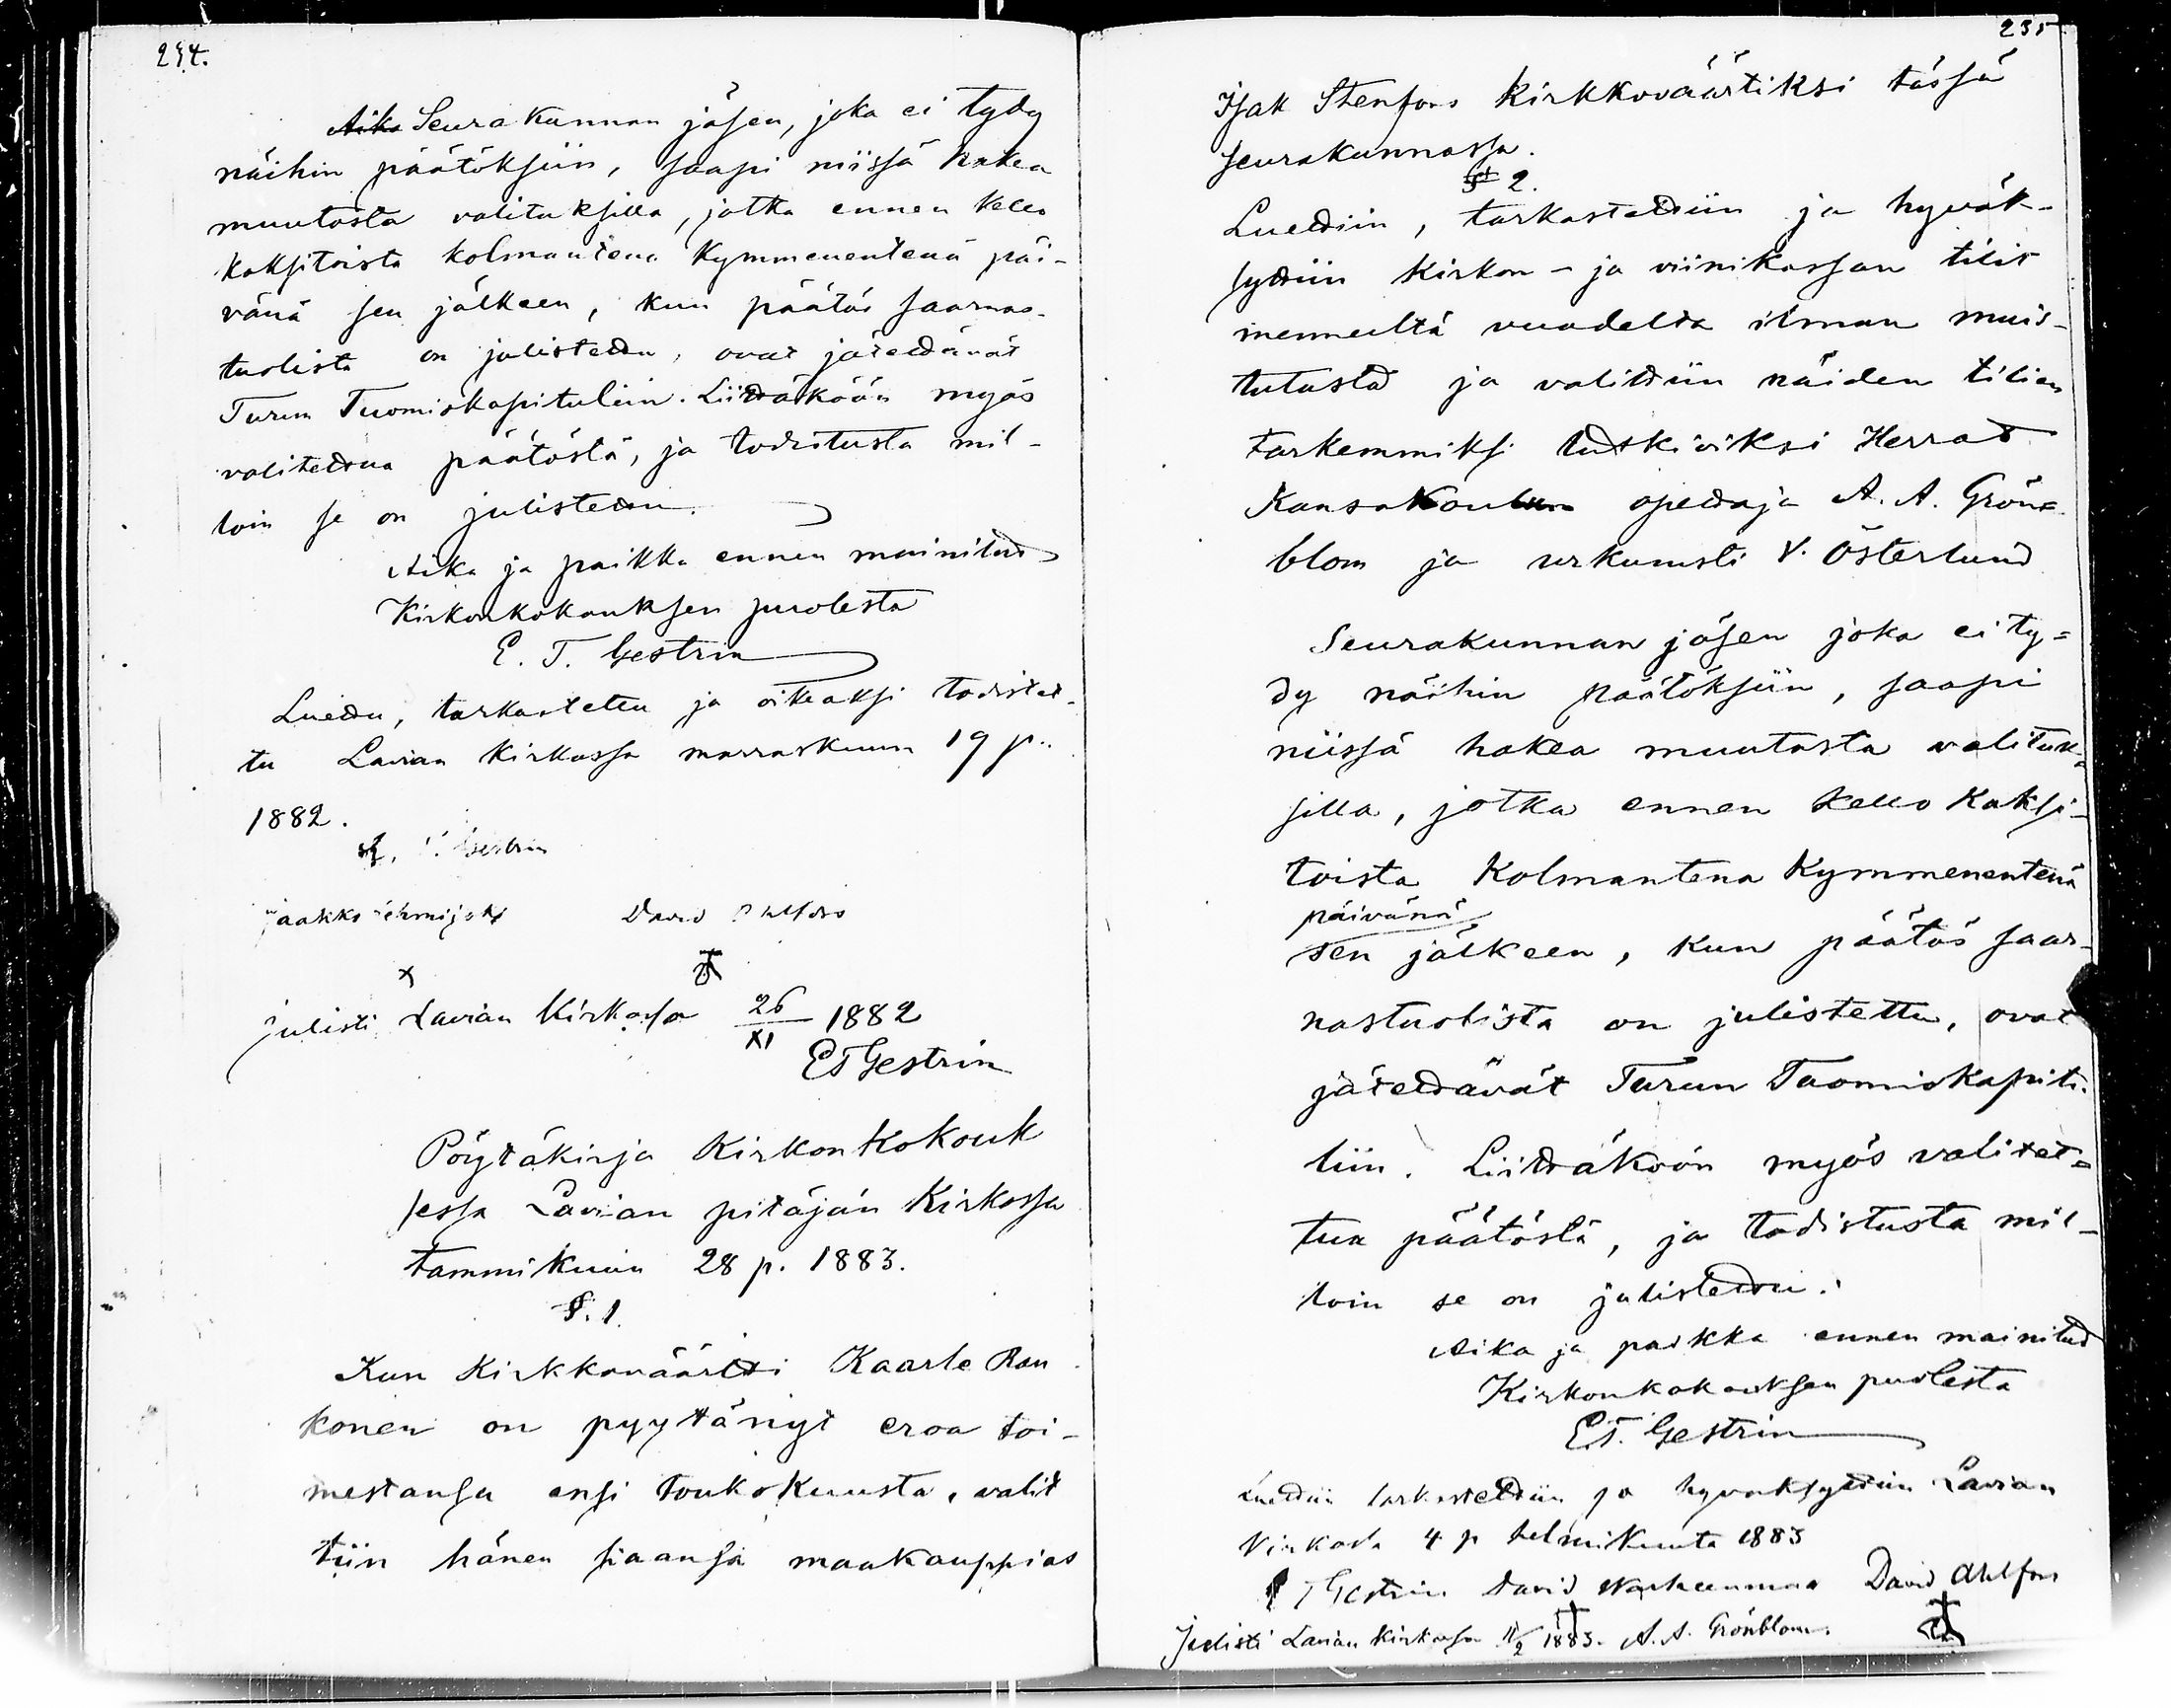 234.
Seurakunnan jäsen, joka ei tydy
näihin päätöksiin, saapi niissä hakea
muutosta valituksilla, jotka ennen kello
kaksitoista kolmantena kymmenentenä päi-
vänä sen jälkeen, kun päätös saarnas-
tuolista on julistettu, ovat jätettävät
Turun Tuomiokapituliin. Liittäköön myös
valitettua päätöstä, ja todistusta mil-
loin se on julistettu.
Aika ja paikka ennen mainitut
Kirkonkokouksen puolesta
E. T. Gestrin
Luettu, tarkastettu ja oikeaksi todistet-
tu Lavian kirkossa marraskuun 19 p.
1882.
Gestrin
Jaakko David
x
julisti Lavian Kirkossa 26/XI 1882
ET Gestrin
Pöytäkirja Kirkonkokouk
sessa Lavian pitäjän Kirkossa
tammikuun 28 p. 1883.
§. 1.
Kun Kirkkoväärtti Kaarle Ran
konen on pyytänyt eroa toi-
mestansa ensi toukokuusta, valit
tiin hänen siaansa maakauppias
235
Isak Stenfors Kirkkoväärtiksi tässä
seurakunnassa.
§ 2.
Luettiin, tarkastettiin ja hyväk-
syttiin kirkon- ja viinikassan tilit
menneeltä vuodelta ilman muis-
tutusta ja valittiin näiden tilien
tarkemmiksi tutkiviksi Herrat
Kansakoulun opettaja A. A. Grön=
blom ja urkunisti V. Österlund
Seurakunnan jäsen joka ei ty=
dy näihin päätöksiin, saapi
niissä hakea muutosta valituk=
silla, jotka ennen kello kaksi-
toista Kolmantena Kymmenentenä
päivänä
sen jälkeen, kun päätös saar-
nastuolista on julistettu, ovat
jätettävät Turun Tuomiokapitu-
liin. Liittäköön myös valitet=
tua päätöstä, ja todistusta mil-
loin se on julistettu.
Aika ja paikka ennen mainitut
Kirkonkokouksen puolesta
E.T. Gestrin
Luettiin tarkastettiin ja hyväksyttiin Lavian
Kirkossa 4 p helmikuuta 1883
T Gestrin David David Ahlfors
Julisti Lavian kirkossa 11/2 1883. A. A. Grönblom.